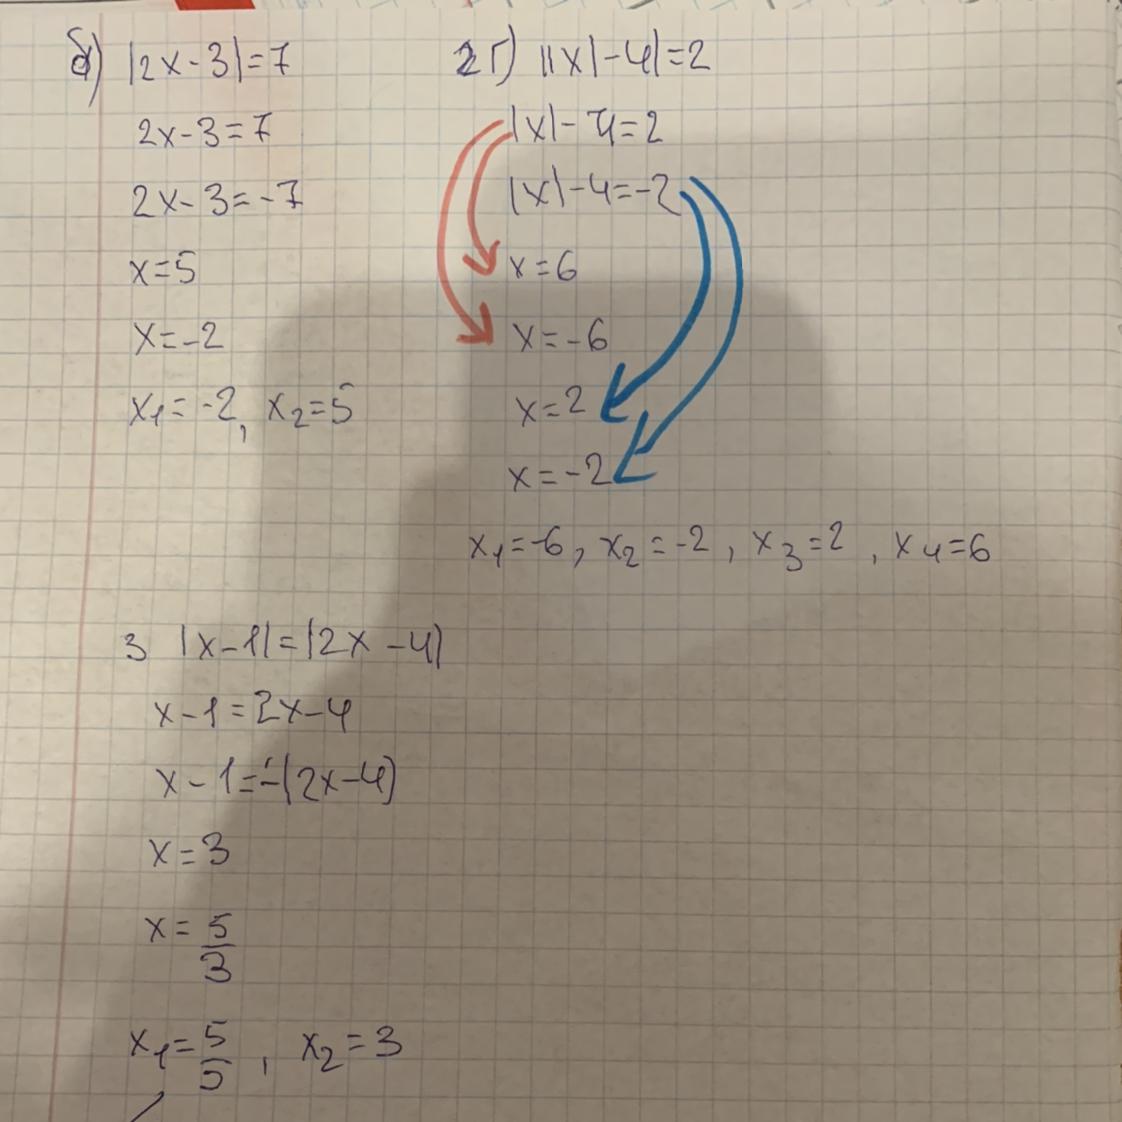 б) |2x-3|=7
2x-3=7
2x-3=-7
x=5
x=-2
x₁=-2, x₂=5
2г) ||x|-4|=2
|x|-4=2
|x|-4=-2
x=6
x=-6
x=2
x=-2
x₁=-6, x₂=-2, x₃=2, x₄=6
3 |x-1|=|2x-4|
x-1=2x-4
x-1=-(2x-4)
x=3
x=5/3
x₁=5/5, x₂=3